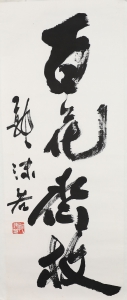 百花齊放
郭沫若